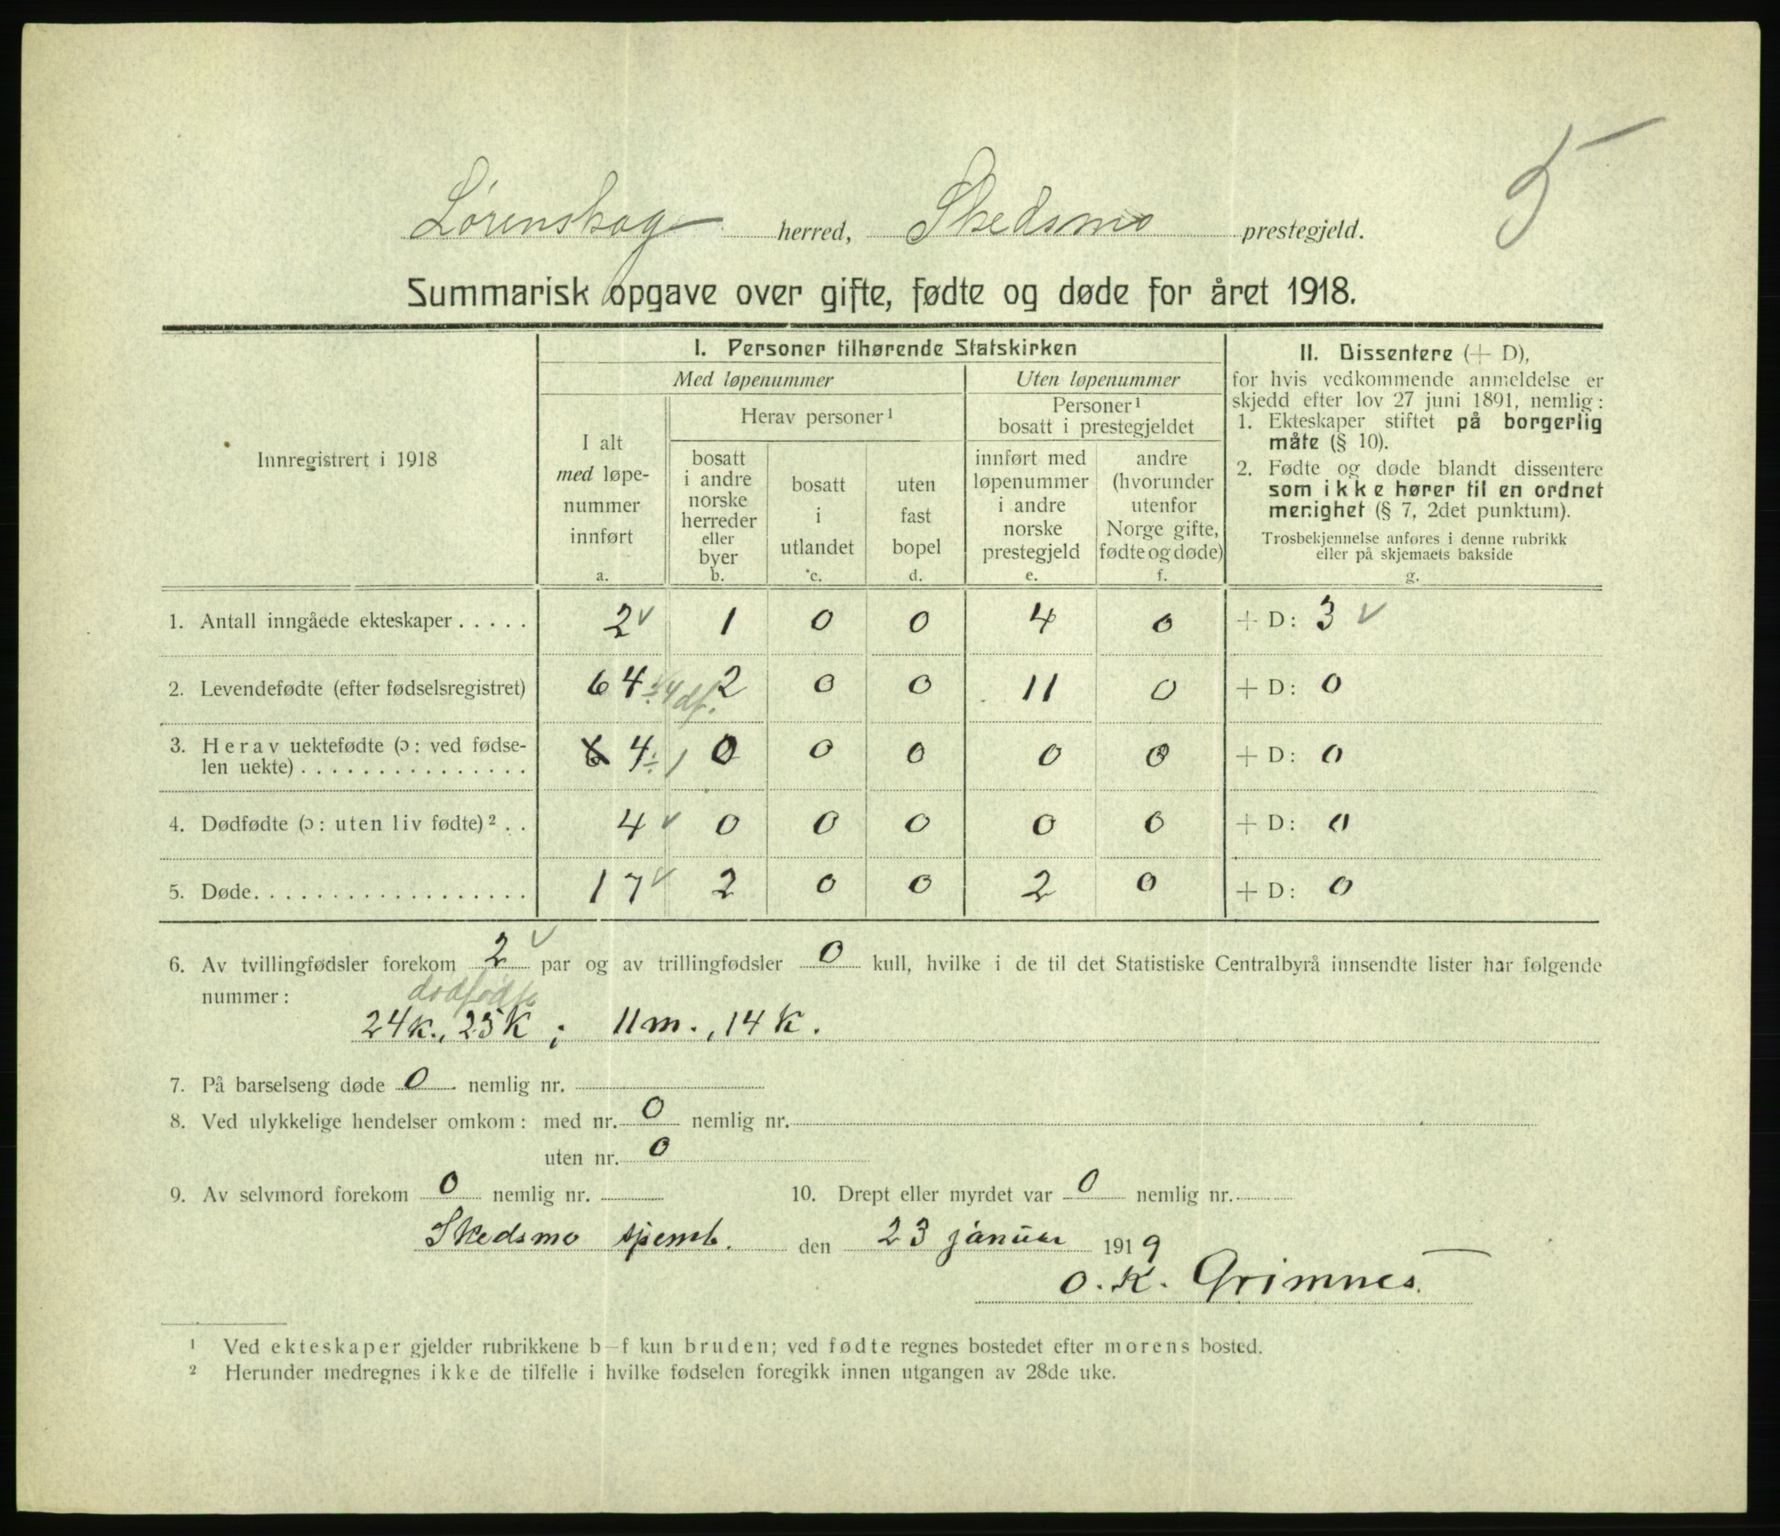 5
Lørenskog herred, Skedsmo prestegjeld.
Summarisk opgave over gifte, fødte og døde for året 1918.
Innregistrert i 1918
I. Personer tilhørende Statskirken
Med løpenummer
Uten løpenummer
I alt med løpenummer innført a.
Herav personer¹
bosatt i andre norske herreder eller byer b.
bosatt i utlandet c.
uten fast bopel d.
Personer¹ bosatt i prestegjeldet
innført med løpenummer i andre norske prestegjeld e.
andre (hvorunder utenfor Norge gifte, fødte og døde) f.
II. Dissentere (+ D),
for hvis vedkommende anmeldelse er
skjedd efter lov 27 juni 1891, nemlig:
1. Ekteskaper stiftet på borgerlig
måte (§ 10).
2. Fødte og døde blandt dissentere
som ikke hører til en ordnet
menighet (§ 7, 2det punktum).
Trosbekjennelse anføres i denne rubrikk
eller på skjemaets bakside
g.
1. Antall inngåede ekteskaper . . . . . 2 √ 1 0 0 4 0 + D: 3 √
2. Levendefødte (efter fødselsregistret) 64 ÷4 df. 2 0 0 11 0 + D: 0
3. Herav uektefødte (ɔ: ved fødse-
len uekte) . . . . . . . . . . . . . . . 4 ÷1 0 0 0 0 0 + D: 0
4. Dødfødte (ɔ: uten liv fødte)² . . 4 √ 0 0 0 0 0 + D: 0
5. Døde. . . . . . . . . . . . . . . . . . 17 √ 2 0 0 2 0 + D: 0
6. Av tvillingfødsler forekom 2 √ par og av trillingfødsler 0 kull, hvilke i de til det Statistiske Centralbyrå innsendte lister har følgende
nummer:
dødfødte
24 k., 25 k ; 11 m., 14 k.
7. På barselseng døde 0 nemlig nr.
8. Ved ulykkelige hendelser omkom: med nr. 0 nemlig nr.
uten nr. 0
9. Av selvmord forekom 0 nemlig nr. 10. Drept eller myrdet var 0 nemlig nr.
Skedsmo spemb. den 23 januar 1919
O. K. Grimnes.
¹ Ved ekteskaper gjelder rubrikkene b–f kun bruden; ved fødte regnes bostedet efter morens bosted.
² Herunder medregnes ikke de tilfelle i hvilke fødselen foregikk innen utgangen av 28de uke.